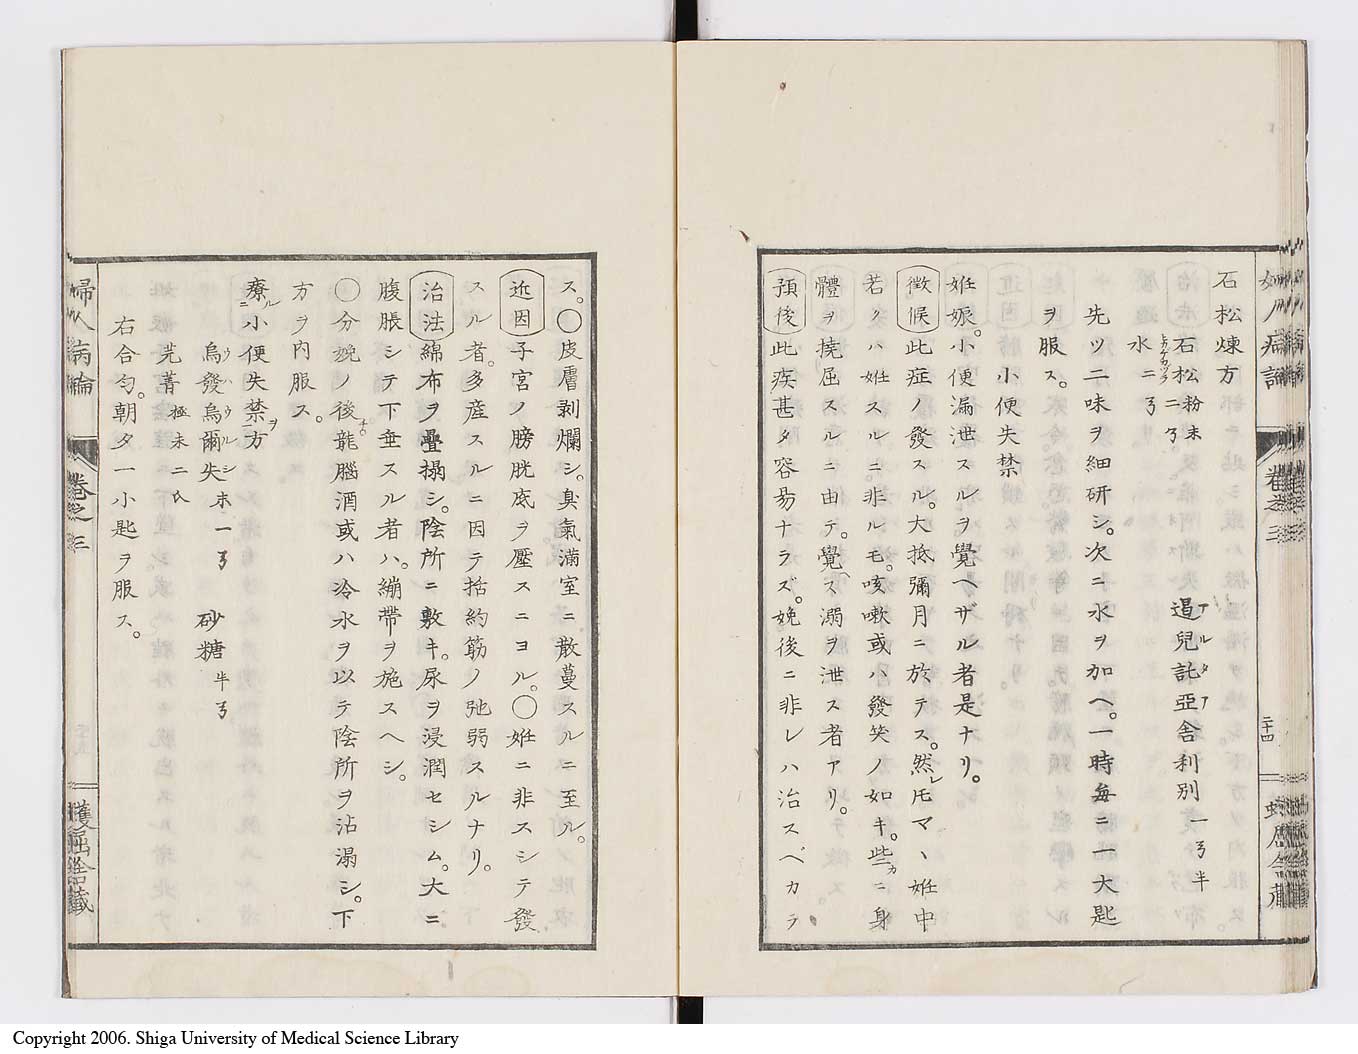 石松煉方
石松粉末二弓 遏兒託亞舍利別一弓半
ヒカゲカツラ アルタア
水二弓
先ツ二味ヲ細研シ。次ニ水ヲ加ヘ。一時每ニ一大匙
ヲ服ス。
小便失禁
姙娠。小便漏泄スルヲ覺ヘザル者是ナリ。
徴候 此症ノ發スル。大抵彌月ニ於テス。然レ𪜈マヽ姙中
若クハ姙スルニ。非ルモ。咳嗽或ハ發笑ノ如キ。些カニ身
體ヲ撓屈スルニ由テ。覺ス溺ヲ泄ス者アリ。
預後 此疾甚タ容易ナラズ。娩後ニ非レハ治スベカラ
婦人病論 卷之三 二十四
ス。〇皮膚剥爛シ。臭氣滿室ニ散蔓スルニ至ル。
近因 子宮ノ膀胱底ヲ壓スニヨル。〇姙ニ非スシテ發
スル者。多産スルニ因テ括約筋ノ弛弱スルナリ。
治法 綿布ヲ疊搨シ。陰所ニ敷キ。尿ヲ浸潤セシム。大ニ
腹脹シテ下垂スル者ハ。繃帶ヲ施スヘシ。
〇分娩ノ後。龍腦酒或ハ冷水ヲ以テ陰所ヲ沾溻シ。下
方ヲ内服ス。
療ルニ小便失禁ヲ方
烏發烏爾失末一弓 砂糖半弓
ウハウルシ
芫菁極末二氏
右合匀。朝夕一小匙ヲ服ス。
婦人病論 卷之三